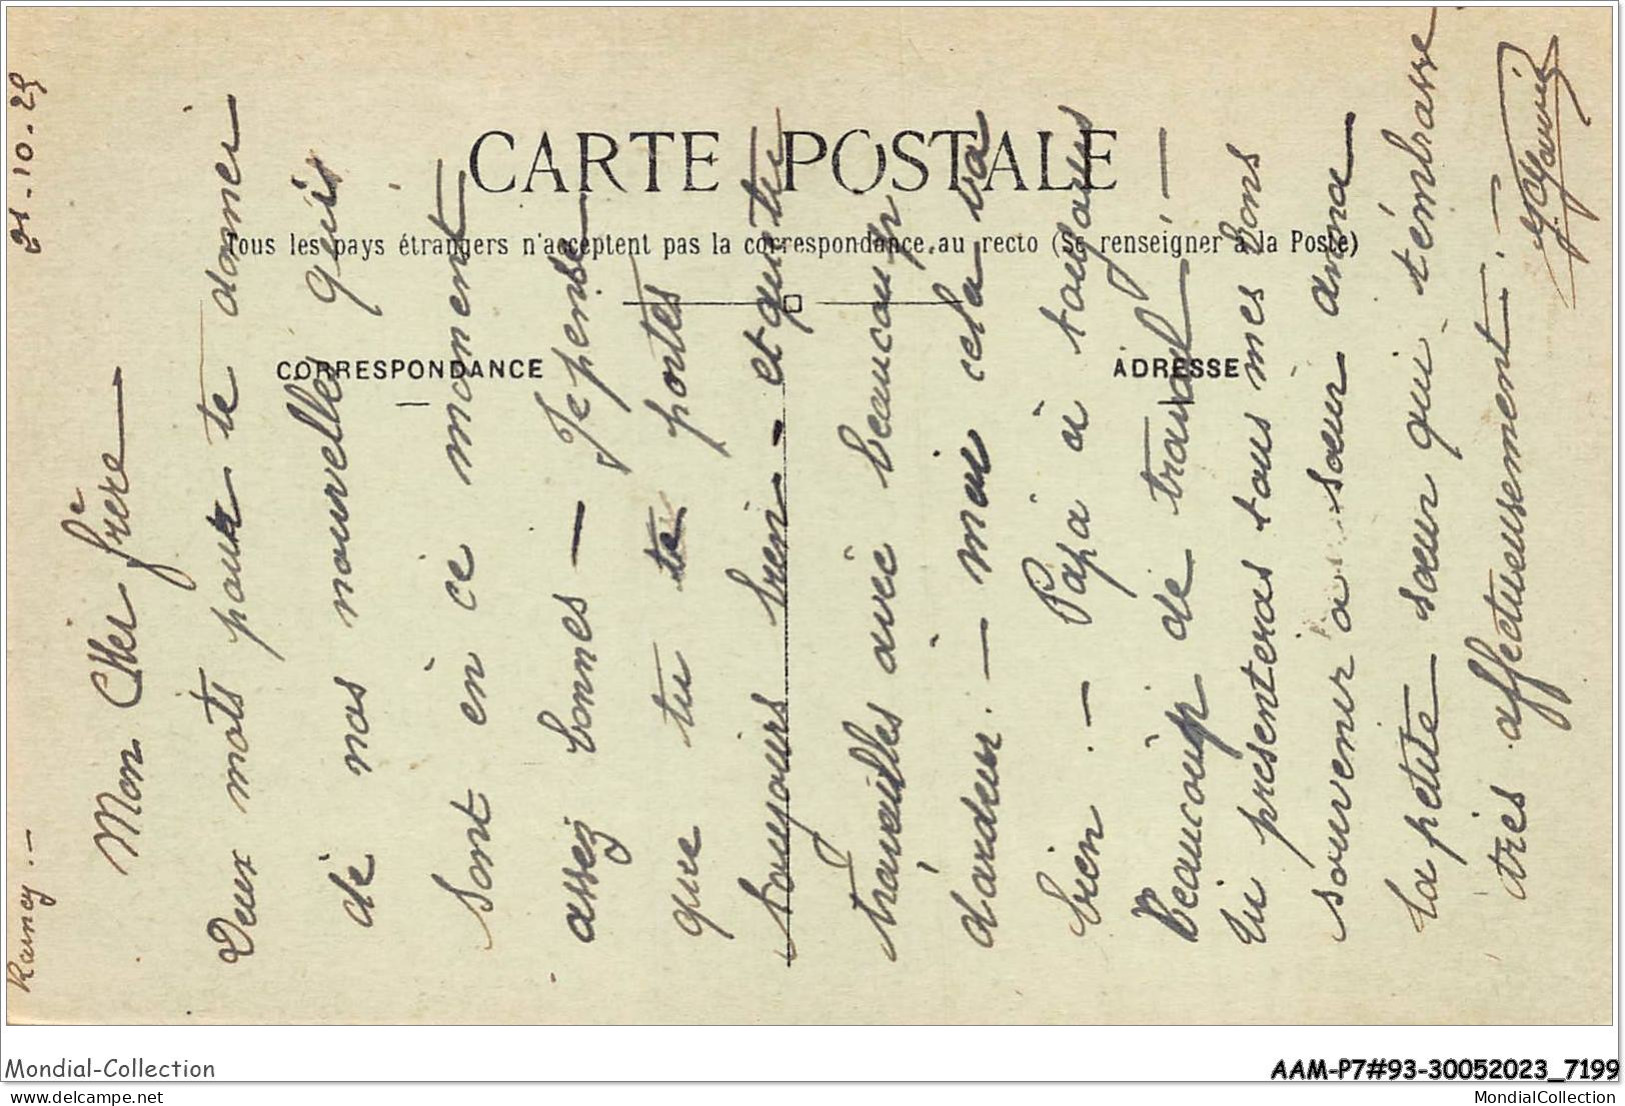 CARTE POSTALE
Tous les pays étrangers n'acceptent pas la correspondance au recto (Se renseigner à la Poste)
CORRESPONDANCE
ADRESSE
21-10-25
Mon Cher frère
Deux mots pour te donner
de nos nouvelles qui
sont en ce moment
assez bonnes — Je pense
que tu te portes
toujours bien - et que tu
travailles avec beaucoup
d'ardeur. — moi cela va
bien. — Papa à toujours
Beaucoup de travail. —
Tu présenteras tous mes bons
souvenir à sœur anna
la petite sœur qui t'émbrasse
très affectueusement. —
Mondial-Collection
AAM-P7#93-30052023_7199
www.delcampe.net
MondialCollection